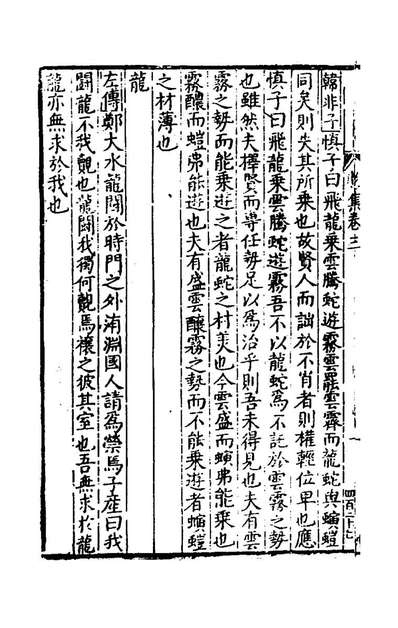 集卷三
韓非子慎子曰飛龍乗雲騰蛇遊霧雲罷霧霽而龍蛇與螾螘
同矣則失其所乗也故賢人而詘於不肖者則權輕位卑也應
慎子曰飛龍乗雲騰蛇遊霧吾不以龍蛇爲不託於雲霧之勢
也雖然夫擇賢而専任勢足以爲治乎則吾未得見也夫有雲
霧之勢而能乗遊之者龍蛇之材美也今雲盛而螾弗能乗也
霧醲而螘弗能遊也夫有盛雲醲霧之勢而不能乗遊者螾螘
之材薄也
龍
左傳鄭大水龍闘於時門之外洧淵國人請爲禜焉子産曰我
闘龍不我覿也龍闘我獨何覿焉禳之彼其室也吾無求於龍
龍亦無求於我也